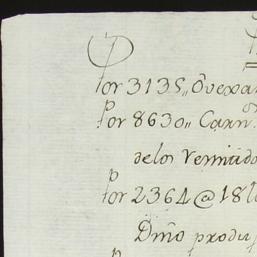 Por 3135,, Ovexa
Por 8630,, Carn
delos Vernido
Por 2364 @ 18 l
Dmo produ
P